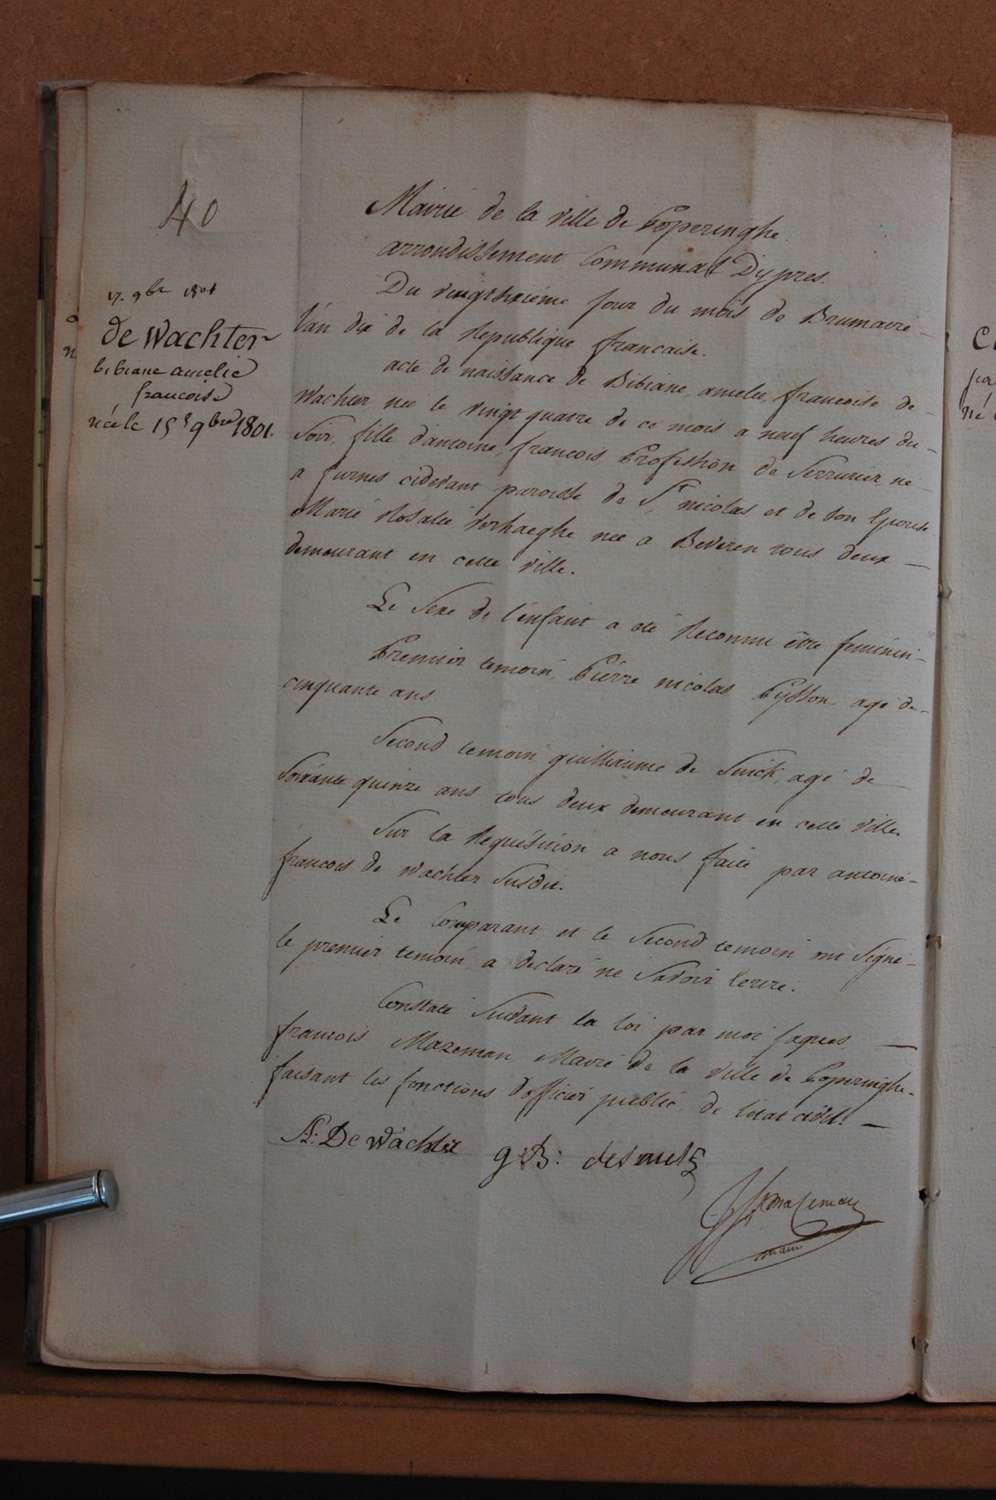 40
17. 9bre 1801
de Wachter
bibiane amelie
francoise
née le 15 9bre 1801.
Mairie de la ville de Poperinghe
arrondissement Communal D'ypres.
Du vingtsixiéme jour du mois de Brumaire
l'an dix de la Republique francaise.
acte de naissance de Bibiane, amelie, francoise de
Wachter née le vingt quatre de ce mois a neuf heures du
Soir, fille d'antoine, francois Profession de Serrurier né
a furnes cidevant paroisse de St nicolas et de son Epouse
Marie Rosalie Verhaeghe née a Beveren tous deux
demeurant en cette ville.
Le Sexe de l'enfant a été Reconnu être feminin
Premier temoin, Piérre nicolas agé de
cinquante ans
Second temoin guilliaume de Smidt, agé de
Soixante quinze ans tous deux demeurant en cette ville
Sur la Requisition a nous faite par antoine
francois de Wachter Susdit.
Le Comparant et le Second temoin ont Signé
le premier temoin a declaré ne Savoir Ecrire.
Constaté Suivant la loi par moi jaques
francois Mazeman Maire de la Ville de Poperinghe
faisant les fonctions d'officier public de l'état civil
De Wachter g: B: desmidt
Mazeman
maire